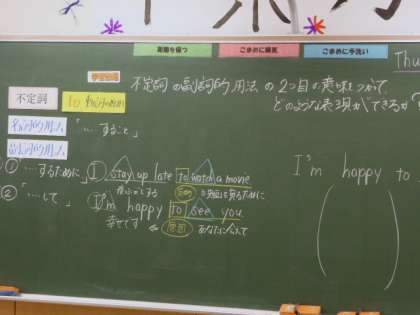 距離を保つ
こまめに換気
こまめに手洗い
Thu
学習課題
不定詞の副詞的用法の2つ目の意味をつかって
どのような表現ができるか?
不定詞
to 動詞の原形
名詞的用法 「…すること」
副詞的用法
① 「…するために」 ① I stay up late to watch a movie
夜ふかしする 目的 映画を見るために
② 「…して」 ② I'm happy to see you
幸せです 原因 あなたに会えて
I'm happy to